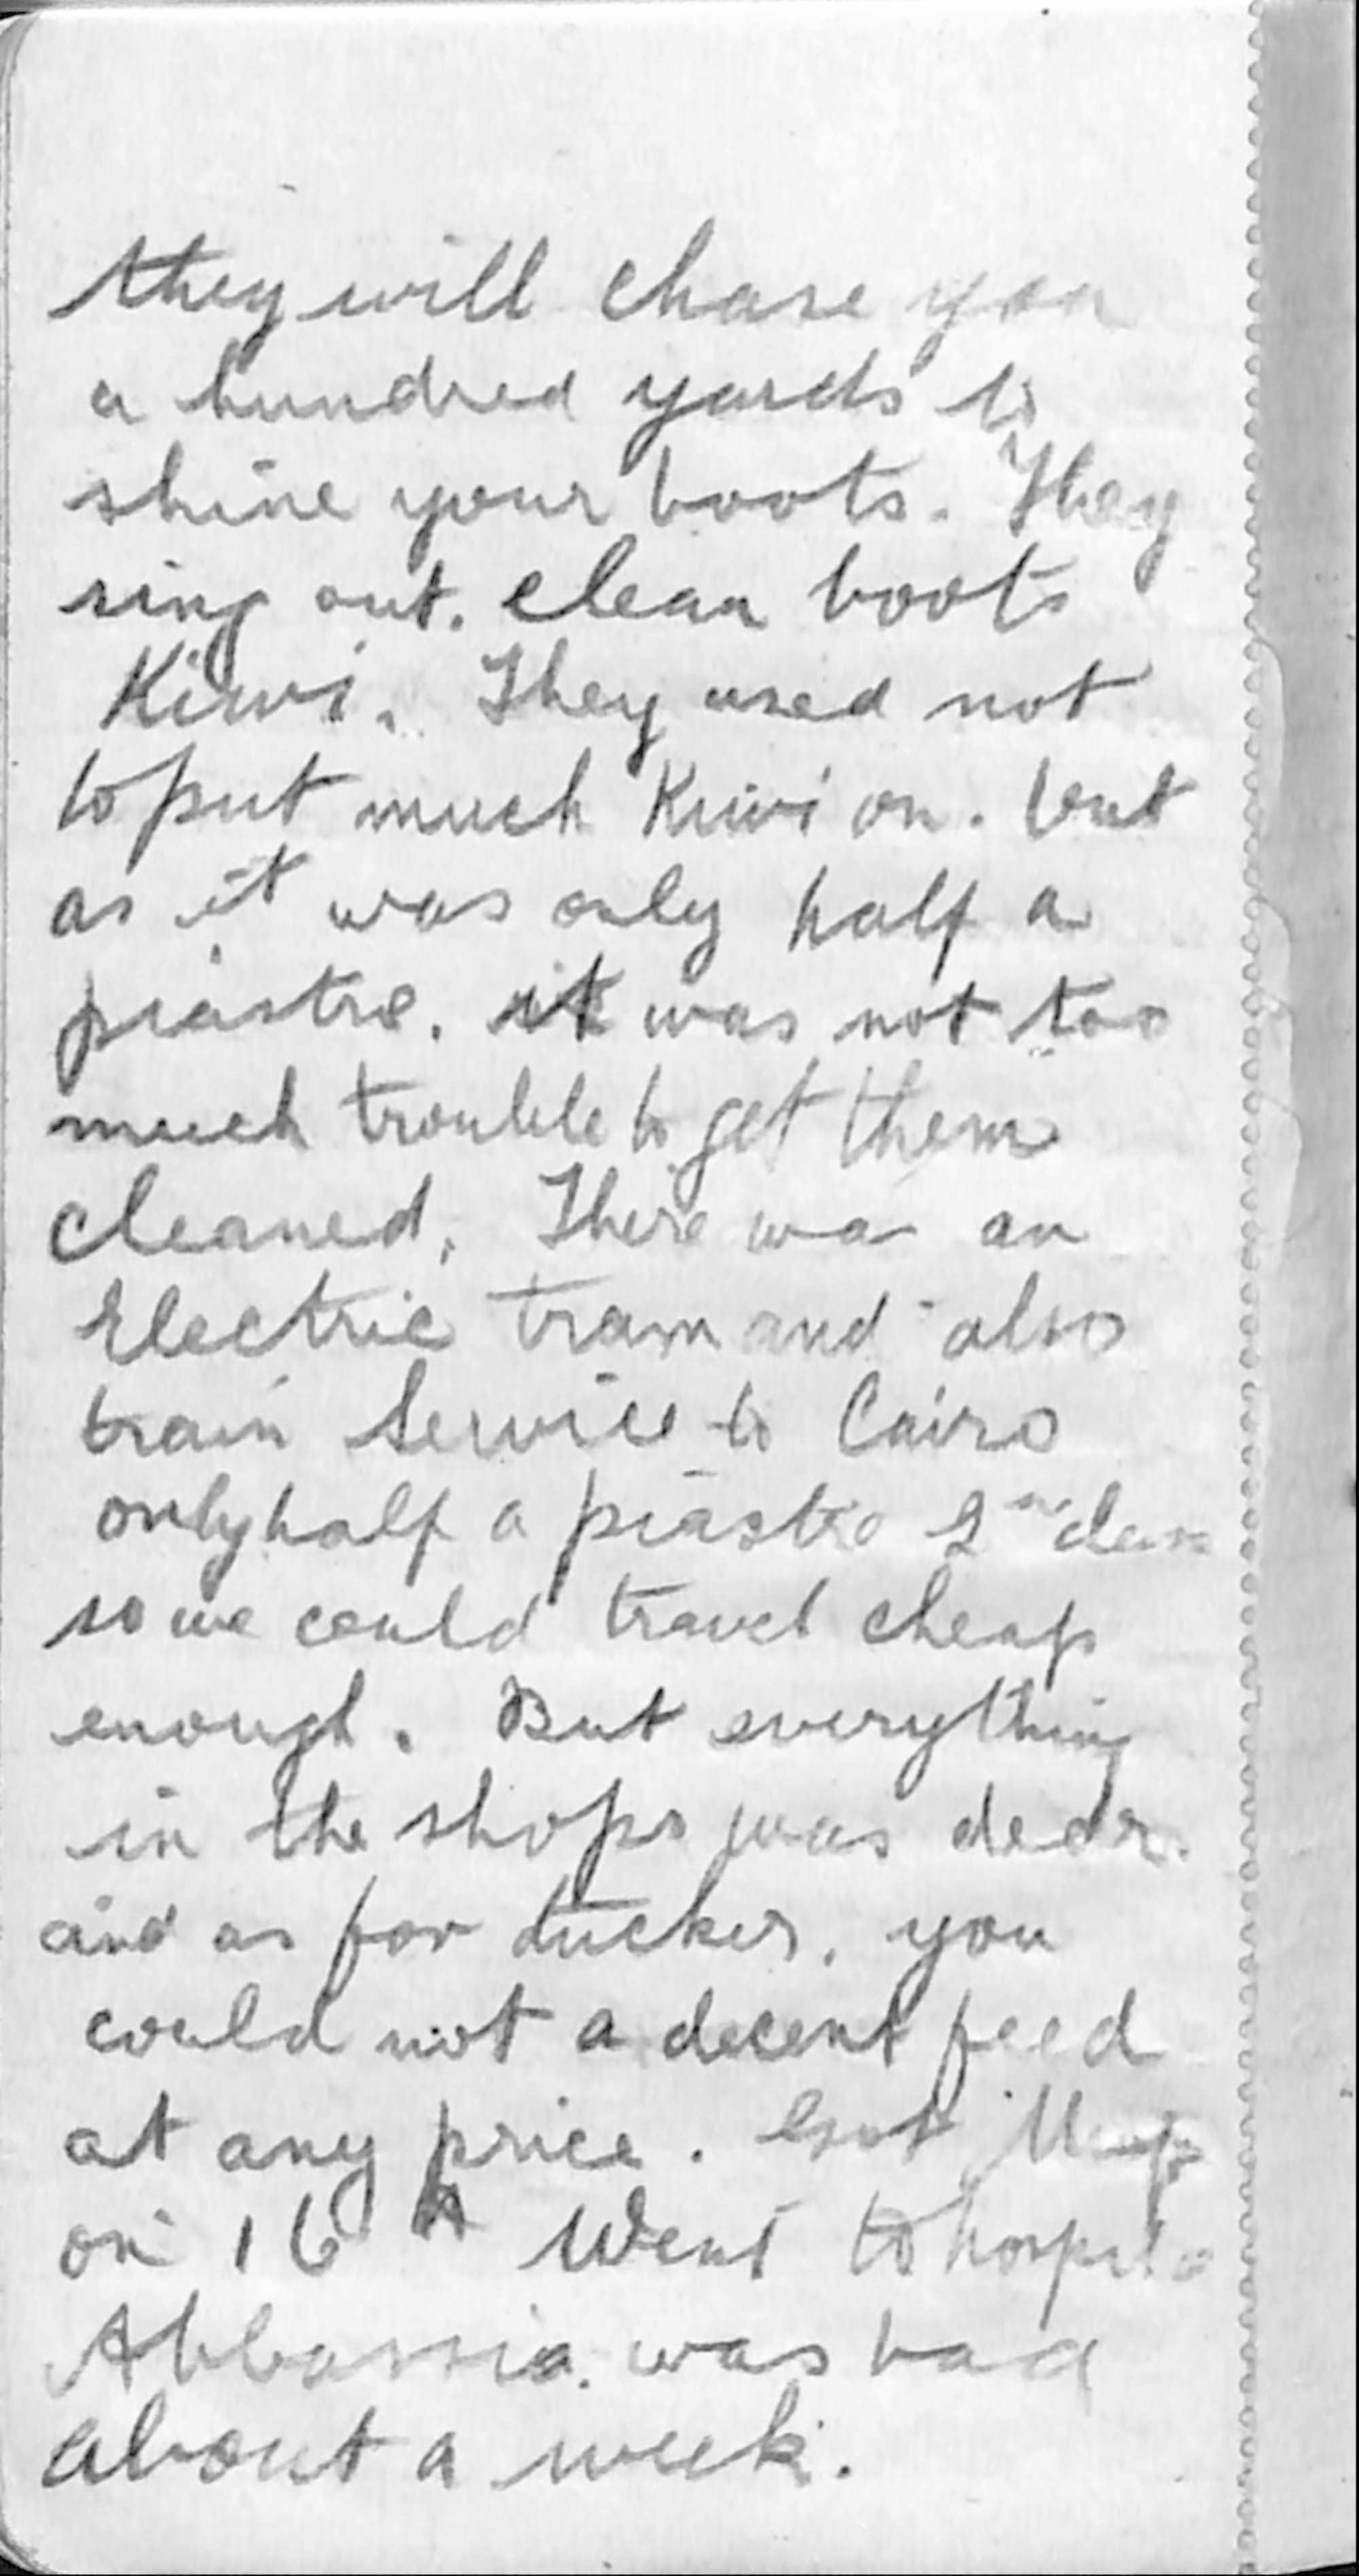 they will chase you
a hundred yards to
shine your boots. They
sing out. clean boots
Kiwi. They used not
to put much Kiwi on. but
as it was only half a
piastre. it was not too
much trouble to get them
cleaned. There was an
Electric tram and also
train Service to Cairo
only half a piastre 2nd class
so we could travel cheap
enough. But everything
in the shops was dear.
and as for tucker. you
could not a decent feed
at any price. Got
on 16th Went to hospital
Abbassia. was bad
about a week.